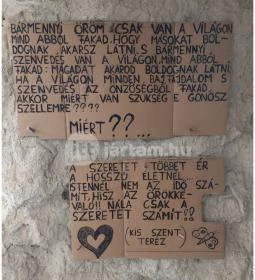 BÁRMENNYI ÖRÖM CSAK VAN A VILÁGON
MIND ABBÓL TAKAD, HOGY MÁSOKAT BOL-
DOGNAK AKARSZ LÁTNI, S BÁRMENNYI
SZENVEDÉS VAN A VILÁGON, MIND ABBÓL
TAKAD: MAGADAT AKAROD BOLDOGNAK LÁTNI
HA A VILÁGON MINDEN BAJ, FÁJDALOM S
SZENVEDÉS AZ ÖNZŐSÉGBŐL FAKAD,
AKKOR MIÉRT VAN SZÜKSÉG E GONOSZ
SZELLEMRE ????
MIÉRT ??...
jartam.hu
A SZERETET TÖBBET ÉR
A HOSSZÚ ÉLETNÉL...
ISTENNÉL NEM AZ IDŐ SZÁ-
MÍT, HISZ AZ ÖRÖKKÉ-
VALÓ!! NÁLA CSAK A
SZERETET SZÁMÍT!!
(KIS SZENT
TERÉZ)